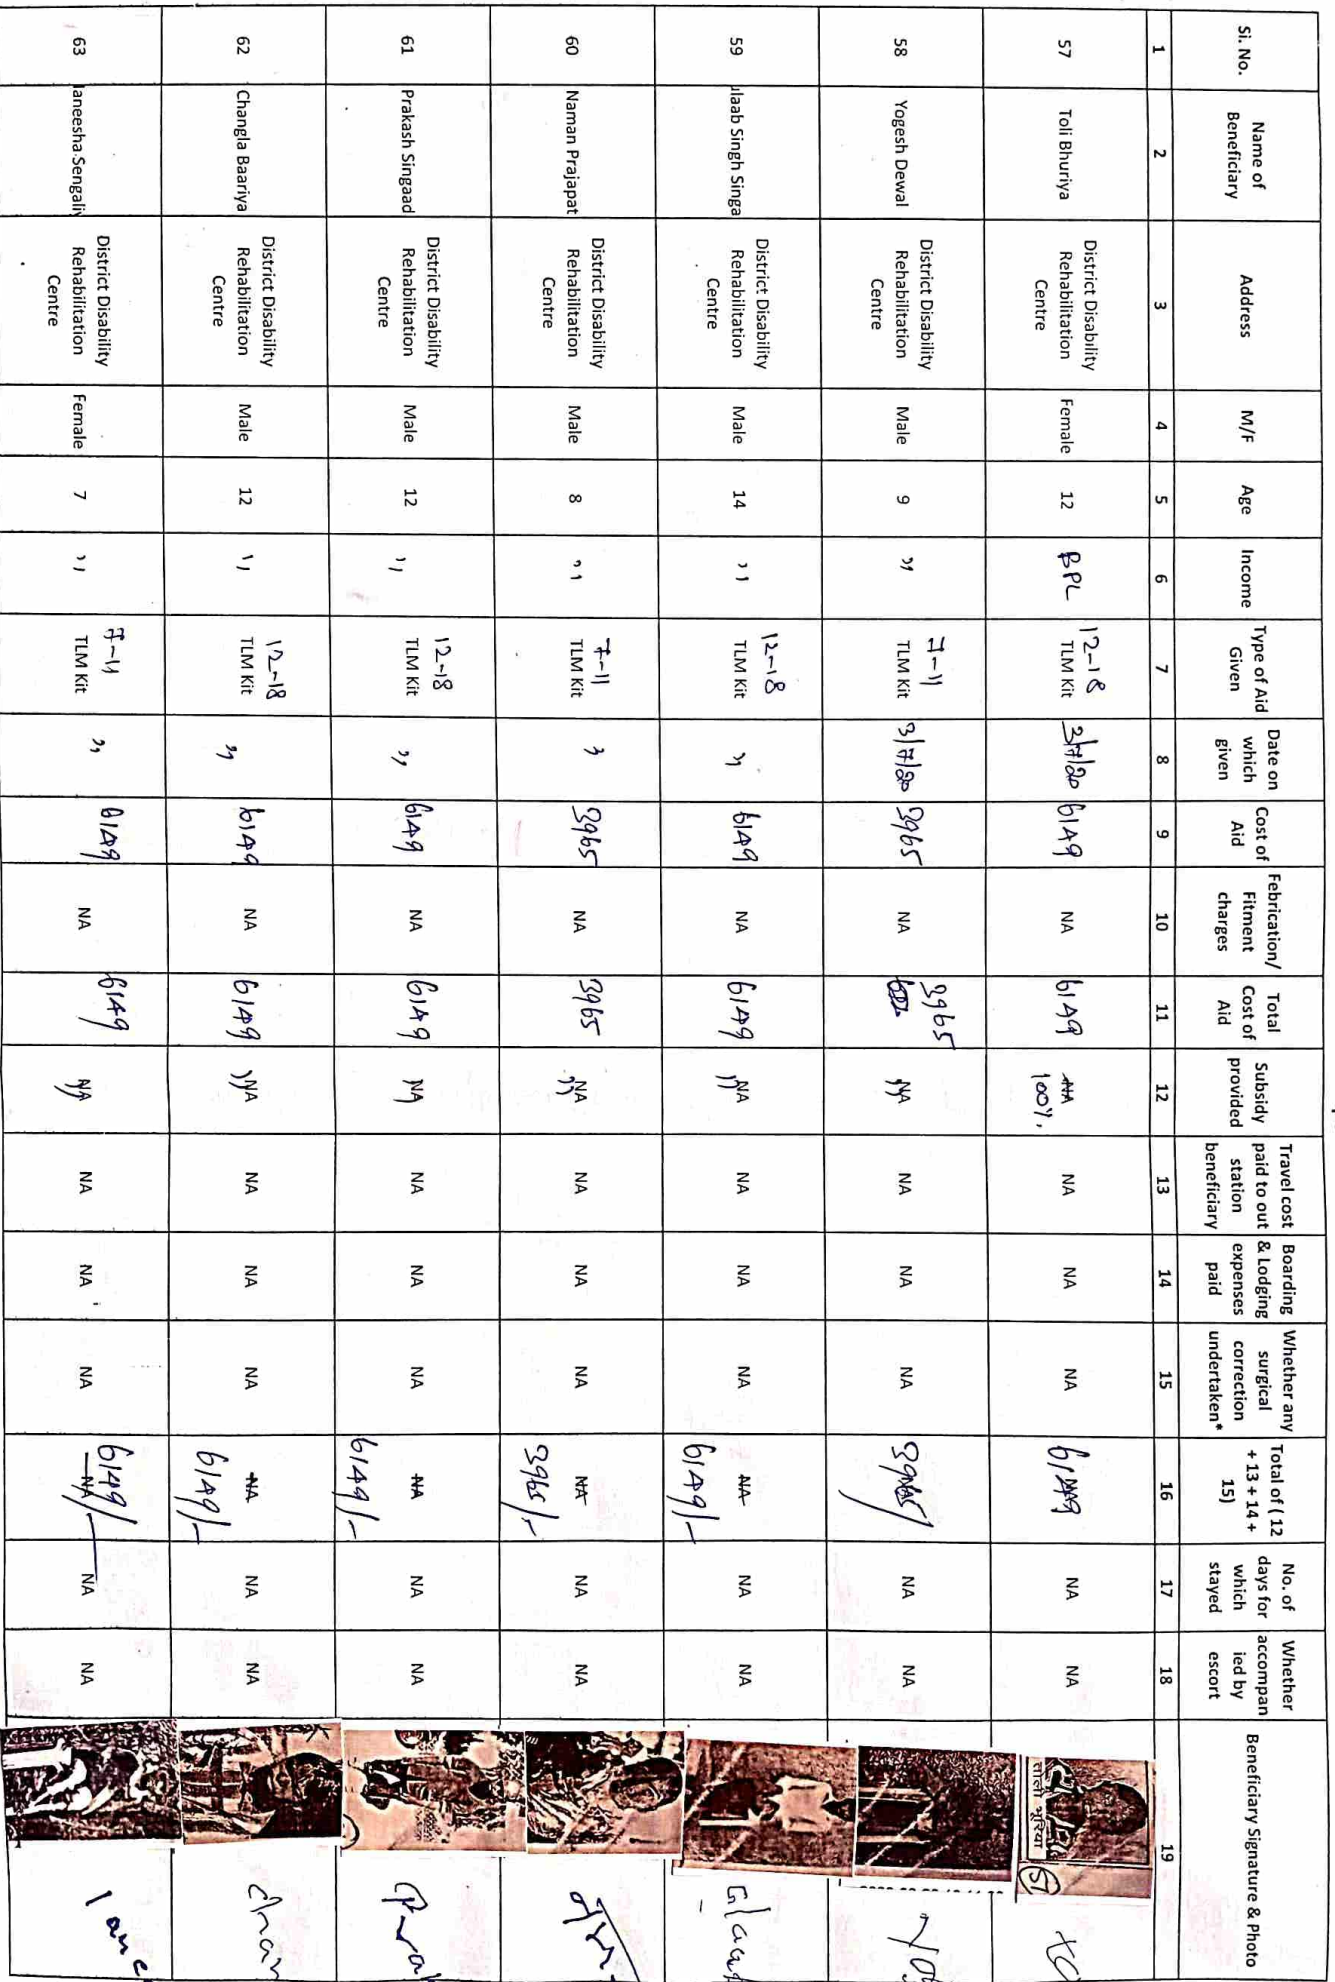 Si. No. Name of Beneficiary Address M/F Age Income Type of Aid Given Date on which given Cost of Aid Febrication/ Fitment charges Total Cost of Aid Subsidy provided Travel cost paid to out station beneficiary Boarding & Lodging expenses paid Whether any surgical correction undertaken* Total of ( 12 + 13 + 14 + 15) No. of days for which stayed Whether accompan ied by escort Beneficiary Signature & Photo
1 2 3 4 5 6 7 8 9 10 11 12 13 14 15 16 17 18 19
57 Toli Bhuriya District Disability Rehabilitation Centre Female 12 BPL 12-18 TLM Kit 3/7/20 6149 NA 6149 NA 100%. NA NA NA 6149 NA NA
58 Yogesh Dewal District Disability Rehabilitation Centre Male 9 " 7-11 TLM Kit 3/7/20 3965 NA 3965 NA NA NA NA 3965/ NA NA
59 ulaab Singh Singa District Disability Rehabilitation Centre Male 14 " 12-18 TLM Kit " 6149 NA 6149 NA " NA NA NA NA 6149/- NA NA
60 Naman Prajapat District Disability Rehabilitation Centre Male 8 " 7-11 TLM Kit " 3965 NA 3965 NA " NA NA NA NA 3965/- NA NA
61 Prakash Singaad District Disability Rehabilitation Centre Male 12 " 12-18 TLM Kit " 6149 NA 6149 NA " NA NA NA NA 6149/- NA NA
62 Changla Baariya District Disability Rehabilitation Centre Male 12 " 12-18 TLM Kit " 6149 NA 6149 NA " NA NA NA NA 6149/- NA NA
63 aneesha Sengaliy District Disability Rehabilitation Centre Female 7 " 7-11 TLM Kit " 6149 NA 6149 NA " NA NA NA NA 6149/- NA NA